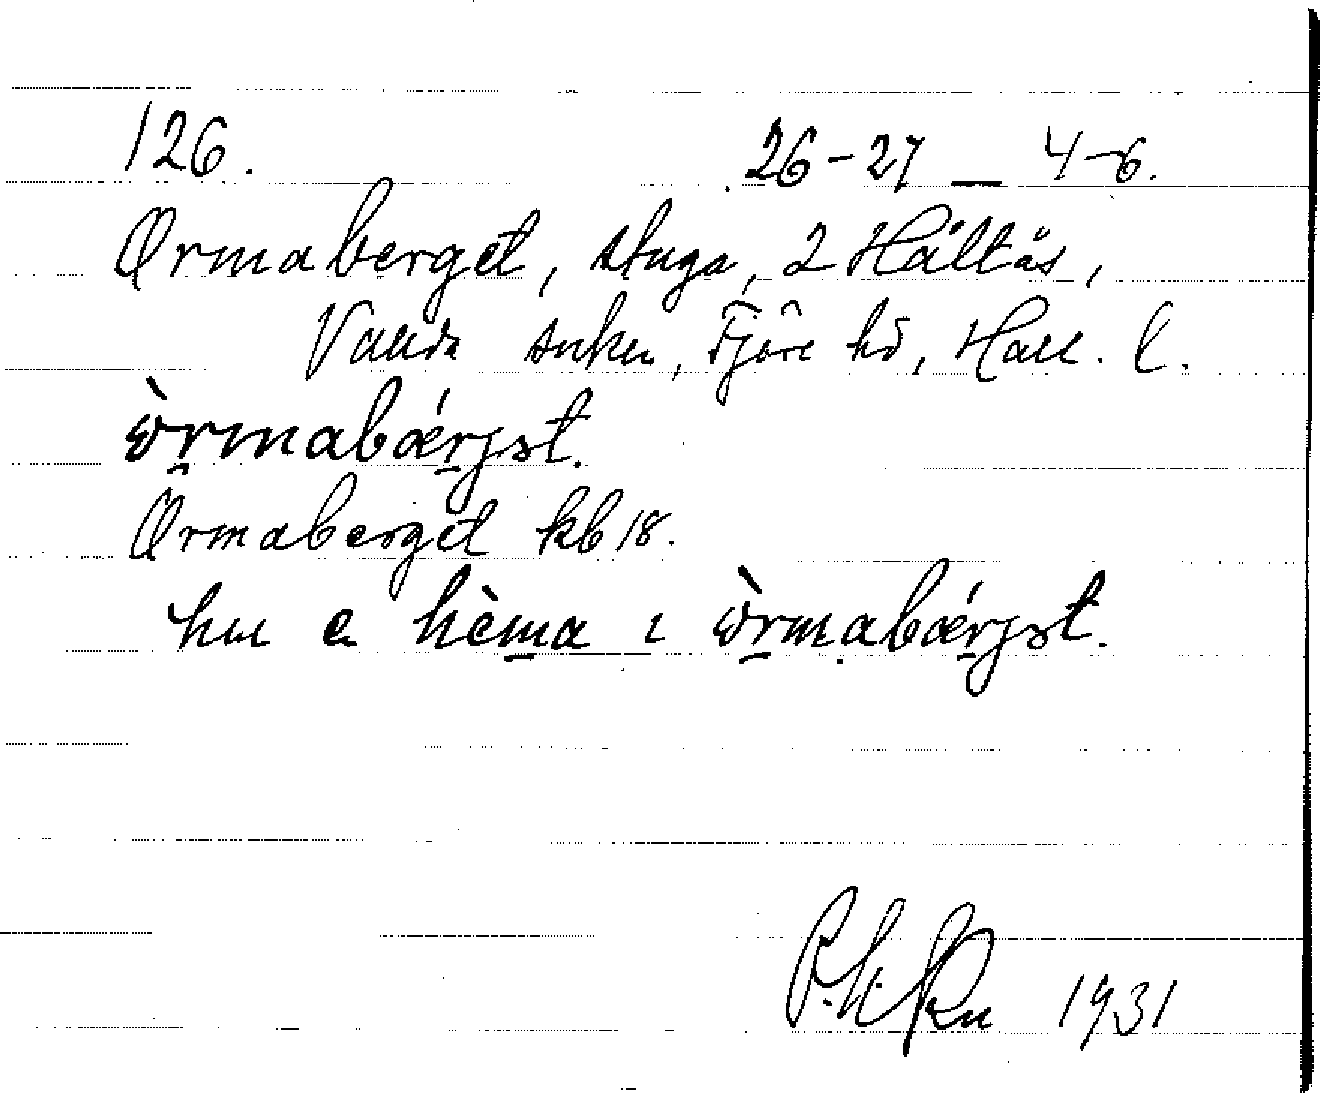 126.
26-27 — 4-6.
Ormaberget, stuga, 2 Hältås,
Valda socken, Fjäre hd, Hall. l.
ὼrmabǽrjət.
Ormaberget kb 18.
hu e hèma ı ὼrmabǽrjət.
1931